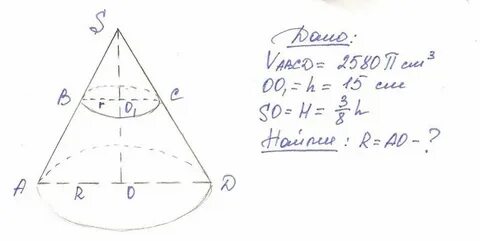 S
B r O₁ C
A R O D
Дано:
V_ABCD = 2580 П см³
OO₁ = h = 15 см
SO = H = 3/8 h
Найти: R = AO - ?